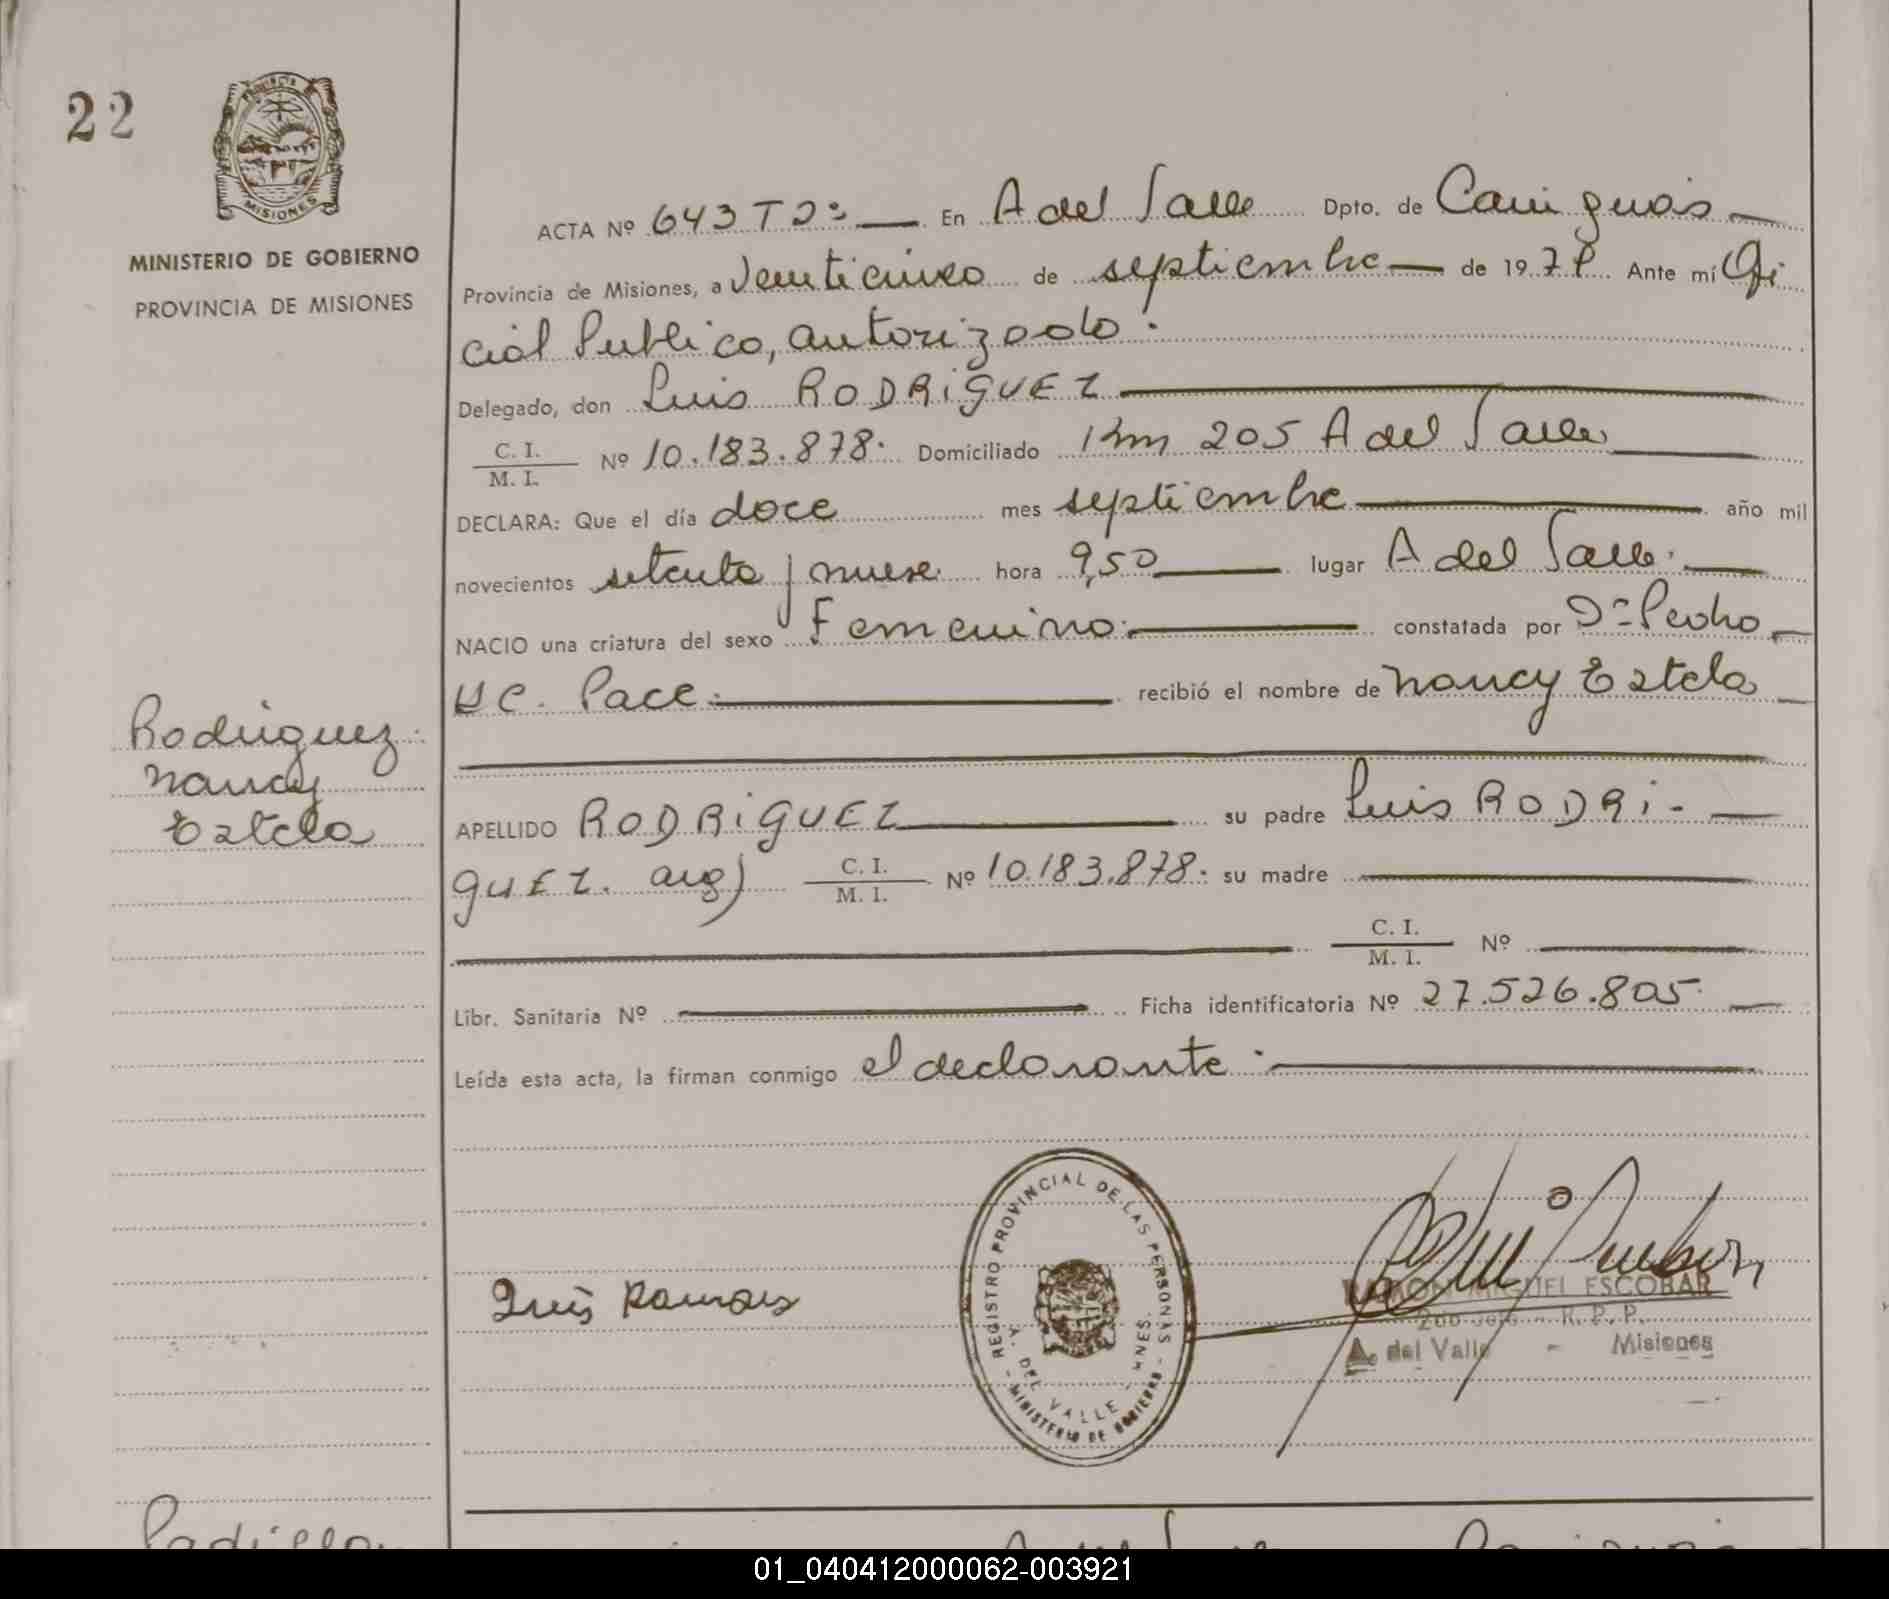 22
MISIONES
MINISTERIO DE GOBIERNO
PROVINCIA DE MISIONES
ACTA Nº 643 T 2º En A del Valle Dpto. de Cainguás
Provincia de Misiones, a Veinticinco de septiembre de 19 79 Ante mí Ofi
cial Publico, autorizado.
Delegado, don Luis RODRiGUEZ
C. I.
M. I. Nº 10.183.878. Domiciliado Km 205 A del Valle
DECLARA: Que el día doce mes septiembre año mil
novecientos setenta y nueve hora 9,50 lugar A del Valle.
NACIO una criatura del sexo Femenino. constatada por Dº Pedro
Pace. recibió el nombre de Nancy Estela
Rodriguez
Nancy
Estela
APELLIDO RODRiGUEZ su padre Luis RODRi-
GUEZ. arg) C. I.
M. I. Nº 10.183.878. su madre
C. I.
M. I. Nº
Libr. Sanitaria Nº Ficha identificatoria Nº 27.526.805.
Leída esta acta, la firman conmigo el declarante.
REGISTRO PROVINCIAL DE LAS PERSONAS
A. DEL VALLE - MNES.
- MINISTERIO DE GOBIERNO -
RAMON MIGUEL ESCOBAR
R. P. P.
A. del Valle - Misiones
01_040412000062-003921